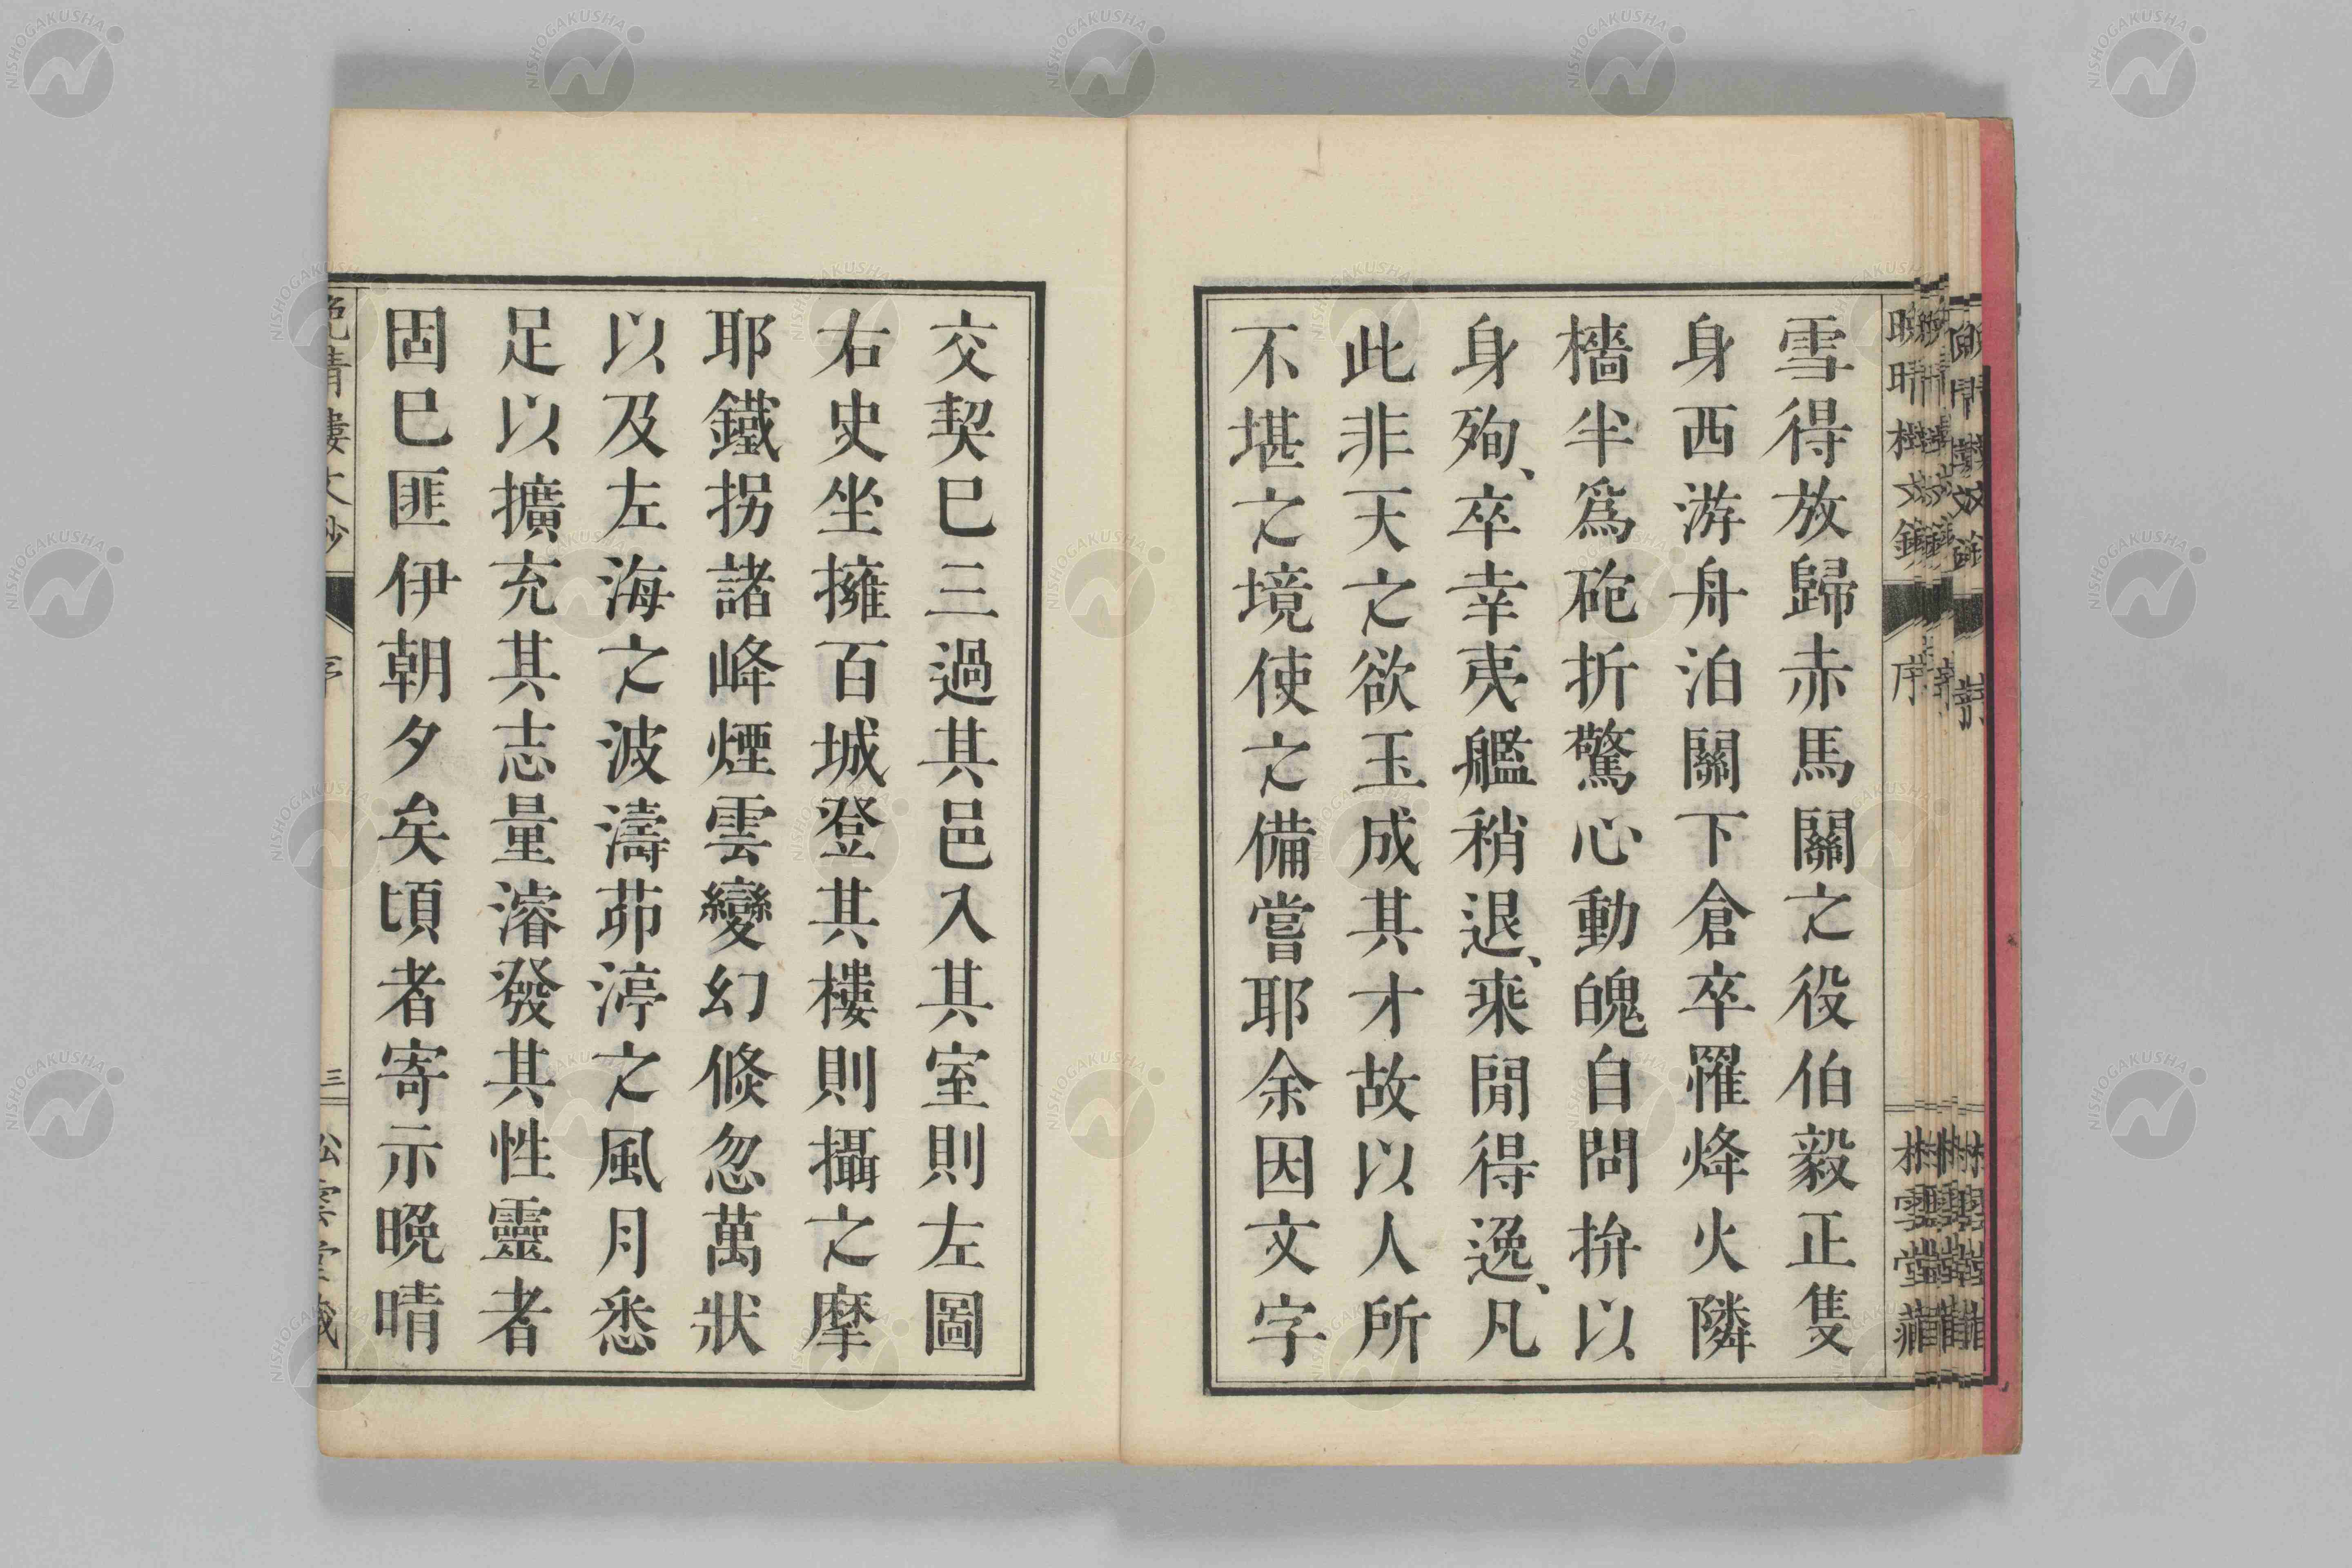 雪得放歸赤馬關之役伯毅正隻
身西游舟泊關下倉卒罹烽火隣
檣半爲砲折驚心動魄自問拚以
身殉、卒幸夷艦稍退、乘閒得逸、凡
此非天之欲玉成其才故以人所
不堪之境使之備嘗耶余因文字
交契巳三過其邑入其室則左圖
右史坐擁百城登其樓則攝之摩
耶鐵拐諸峰煙雲變幻倐忽萬狀
以及左海之波濤茆渟之風月悉
足以擴充其志量濬發其性靈者
固巳匪伊朝夕矣頃者寄示晩晴
序
三
NISHOGAKUSHA